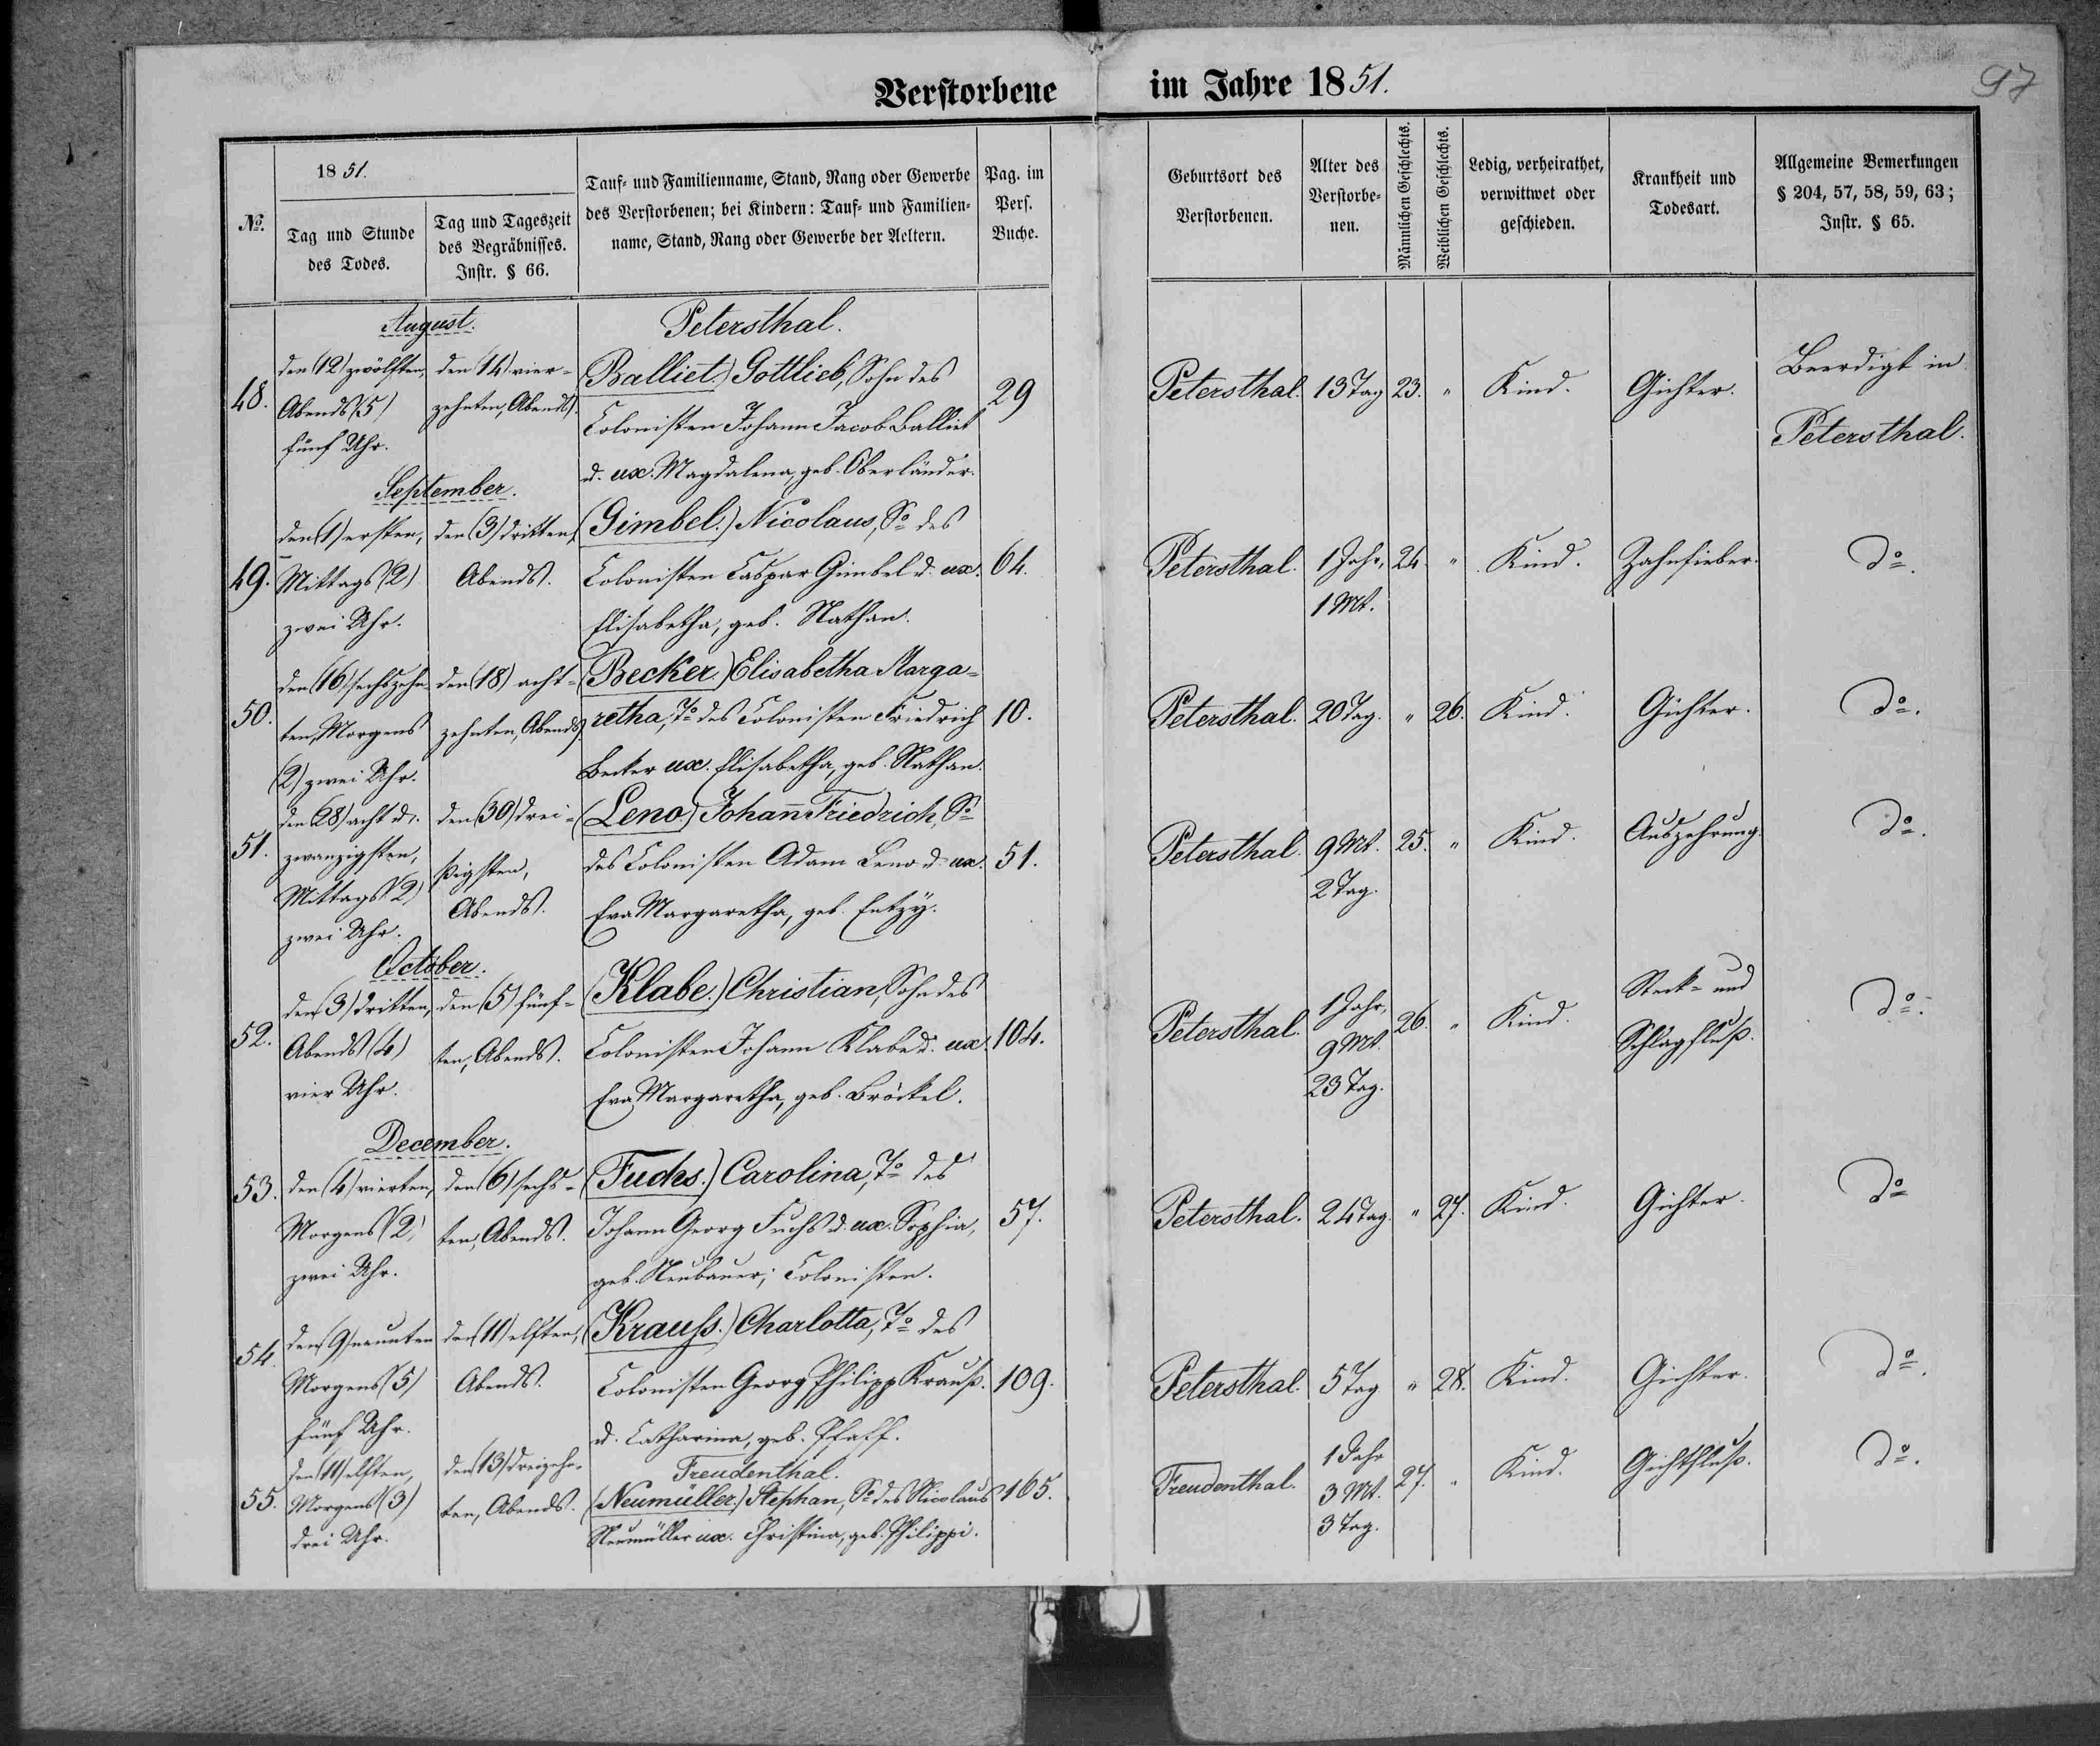 Verstorbene im Jahre 1851.
97
No.
1851.
Tag und Stunde
des Todes.
Tag und Tageszeit
des Begräbnisses.
Instr. § 66.
Tauf- und Familienname, Stand, Rang oder Gewerbe
des Verstorbenen; bei Kindern: Tauf- und Familien-
name, Stand, Rang oder Gewerbe der Aeltern.
Pag. im
Pers.
Buche.
Geburtsort des
Verstorbenen.
Alter des
Verstorbe-
nen.
Männlichen Geschlechts.
Weiblichen Geschlechts.
Ledig, verheirathet,
verwittwet oder
geschieden.
Krankheit und
Todesart.
Allgemeine Bemerkungen
§ 204, 57, 58, 59, 63;
Instr. § 65.
August.
Petersthal.
48.
den (12) zwölften,
Abends (5)
fünf Uhr.
den 14) vier-
zehnten, Abends.
(Balliet.) Gottlieb, Sohn des
Colonisten Johann Jacob Balliet
u. ux. Magdalena, geb. Oberländer.
29
Petersthal.
13 Tag
23.
"
Kind.
Gichter.
Beerdigt in
Petersthal.
September.
49.
den (1) ersten,
Mittags (2)
zwei Uhr.
den (3) dritten,
Abends.
(Gimbel.) Nicolaus, So des
Colonisten Caspar Gimbel u. ux.
Elisabetha, geb. Nathan.
64.
Petersthal.
1 Jahr,
1 Mt.
24.
"
Kind.
Zahnfieber.
do.
50.
den (16) sechszehn-
ten, Morgens
(2) zwei Uhr.
den (18) acht-
zehnten, Abends.
(Becker) Elisabetha Marga-
retha, To des Colonisten Friedrich
Becker ux. Elisabetha, geb. Nathan.
10.
Petersthal.
20 Tag.
"
26.
Kind.
Gichter.
do.
51.
den 28) acht u.
zwanzigsten,
Mittags (2)
zwei Uhr.
den (30) drei-
ßigsten,
Abends.
(Leno) Johann Friedrich, So
des Colonisten Adam Leno u. ux.
Eva Margaretha, geb. Entzy.
51.
Petersthal.
9 Mt.
2 Tag.
25.
"
Kind.
Auszehrung.
do.
October.
52.
den (3) dritten,
Abends (4)
vier Uhr.
den (5) fünf-
ten, Abends.
(Klabe.) Christian, Sohn des
Colonisten Johann Klabe u. ux.
Eva Margaretha, geb. Bröckel.
104.
Petersthal.
1 Jahr,
9 Mt.
23 Tag.
26.
"
Kind.
Steck- und
Schlagfluß.
do.
December.
53.
den (4) vierten,
Morgens (2)
zwei Uhr.
den (6) sechs-
ten, Abends.
(Fuchs.) Carolina, To des
Johann Georg Fuchs u. ux. Sophia,
geb. Neubauer; Colonisten.
57.
Petersthal.
24 Tag.
"
27.
Kind.
Gichter.
do
54.
den 9) neunten
Morgens (5)
fünf Uhr.
den (11) elften,
Abends.
(Krauss.) Charlotta, To des
Colonisten Georg Philipp Krauß.
u. Catharina, geb. Pfaff.
109.
Petersthal.
5 Tag
"
28.
Kind.
Gichter.
do.
Freudenthal.
55.
den 11) elften,
Morgens (3)
drei Uhr.
den (13) dreizehn-
ten, Abends.
(Neumüller.) Stephan, So des Nicolaus
Neumüller ux. Christina, geb. Philippi.
165.
Freudenthal.
1 Jahr
3 Mt.
3 Tag.
27.
"
Kind.
Gichtfluß.
do.